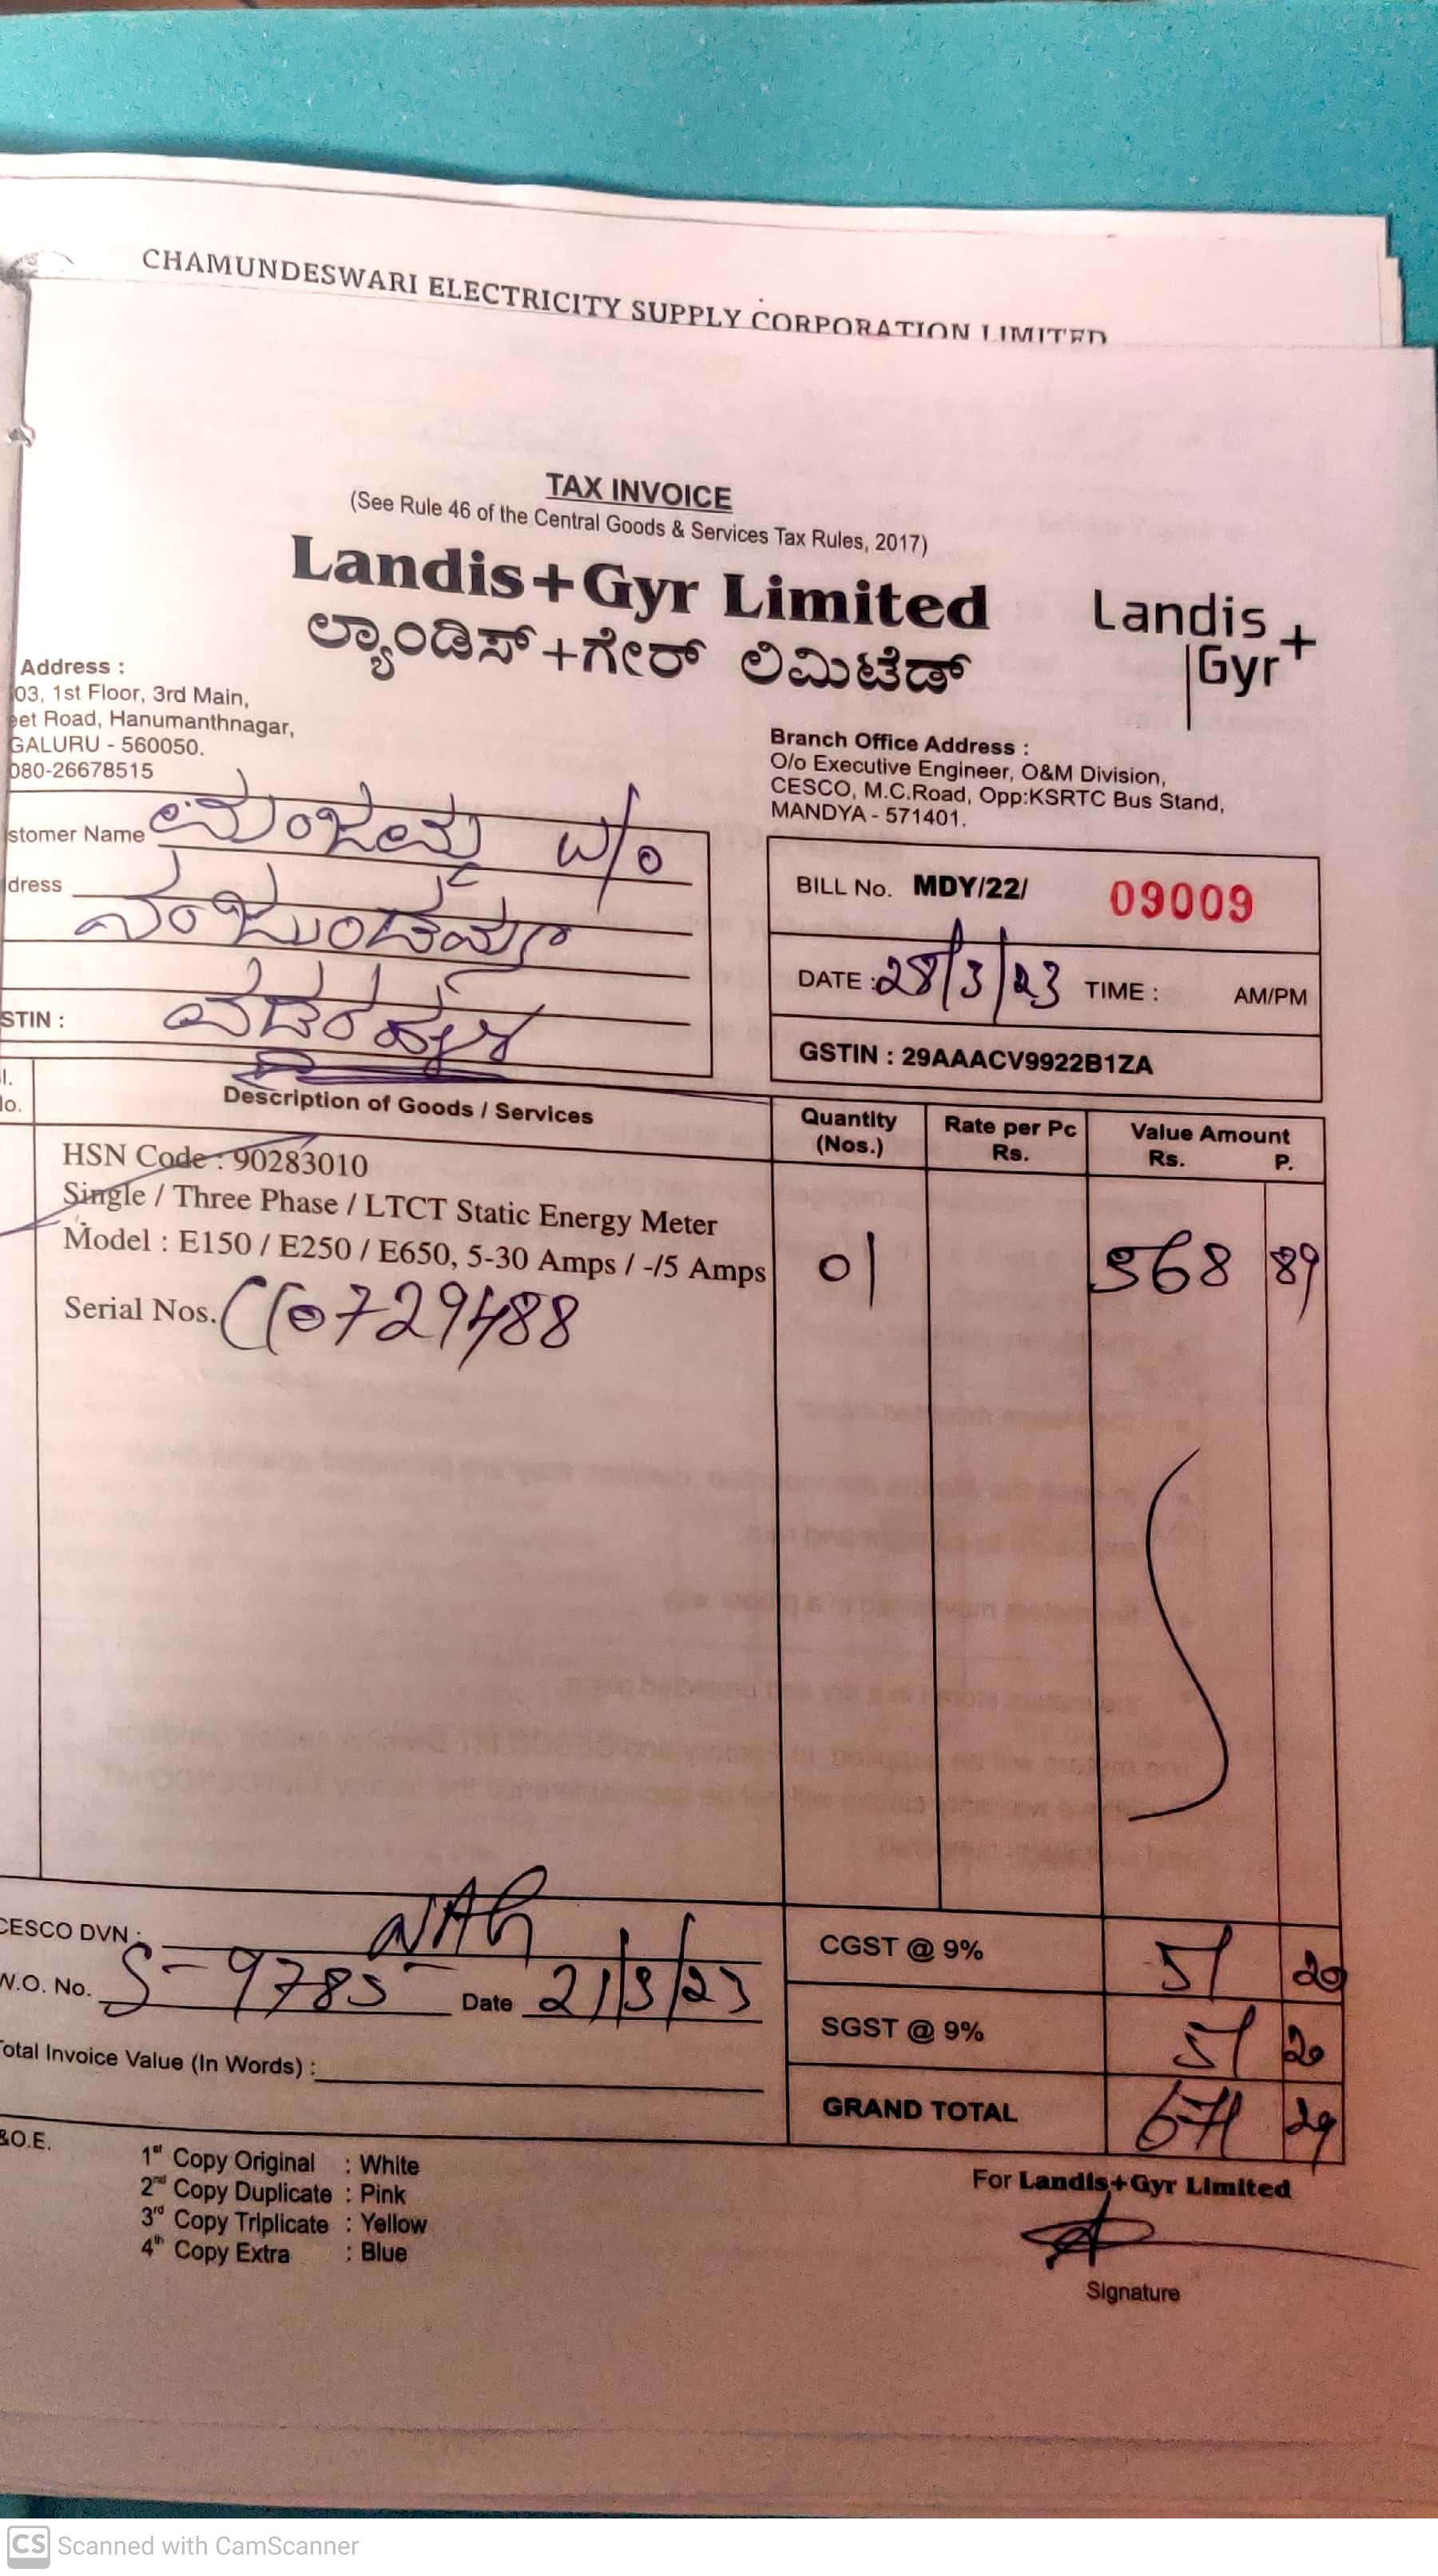 CHAMUNDESWARI ELECTRICITY SUPPLY CORPORATION LIMITED
TAX INVOICE
(See Rule 46 of the Central Goods & Services Tax Rules, 2017)
Landis+Gyr Limited
ಲ್ಯಾಂಡಿಸ್+ಗೇರ್ ಲಿಮಿಟೆಡ್
Landis
Gyr+
Address :
03, 1st Floor, 3rd Main,
eet Road, Hanumanthnagar,
GALURU - 560050.
080-26678515
Branch Office Address :
O/o Executive Engineer, O&M Division,
CESCO, M.C.Road, Opp:KSRTC Bus Stand,
MANDYA - 571401.
stomer Name ಮಂಜಮ್ಮ w/o
dress
STIN :
BILL No. MDY/22/ 09009
DATE : 28/3/23 TIME : AM/PM
GSTIN : 29AAACV9922B1ZA
l. No.
Description of Goods / Services
Quantity (Nos.)
Rate per Pc Rs.
Value Amount Rs. P.
HSN Code : 90283010
Single / Three Phase / LTCT Static Energy Meter
Model : E150 / E250 / E650, 5-30 Amps / -/5 Amps
01 568 89
Serial Nos. 0729488
CESCO DVN : NAG
W.O. No. S-9785 Date 21/3/23
Total Invoice Value (In Words) :
CGST @ 9% 51 20
SGST @ 9% 51 20
GRAND TOTAL 671 29
&O.E.
1st Copy Original : White
2nd Copy Duplicate : Pink
3rd Copy Triplicate : Yellow
4th Copy Extra : Blue
For Landis+Gyr Limited
Signature
CS Scanned with CamScanner